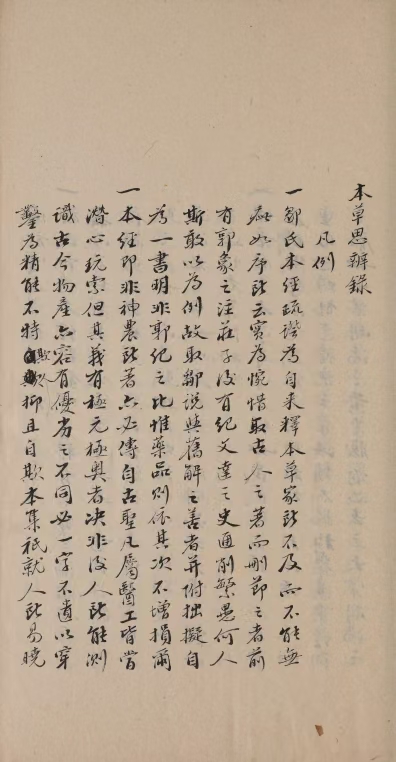 本草思辨錄
凡例
一鄒氏本經疏證為自來釋本草家所不及而不能無
疵如序所云實為惋惜取古人之著而刪節之者前
有郭象之注莊子後有紀文達之史通削繁愚何人
斯敢以為例故取鄒說與舊解之善者并附拙擬自
為一書明非郭紀之比惟藥品則依其次不增損爾
一本經即非神農所著亦必傳自古聖凡屬醫工皆當
潛心玩索但其義有極元極奧者決非後人所能測
識古今物產亦容有優劣之不同必一字不遺以穿
鑿為精能不特欺人抑且自欺本集衹就人所易曉